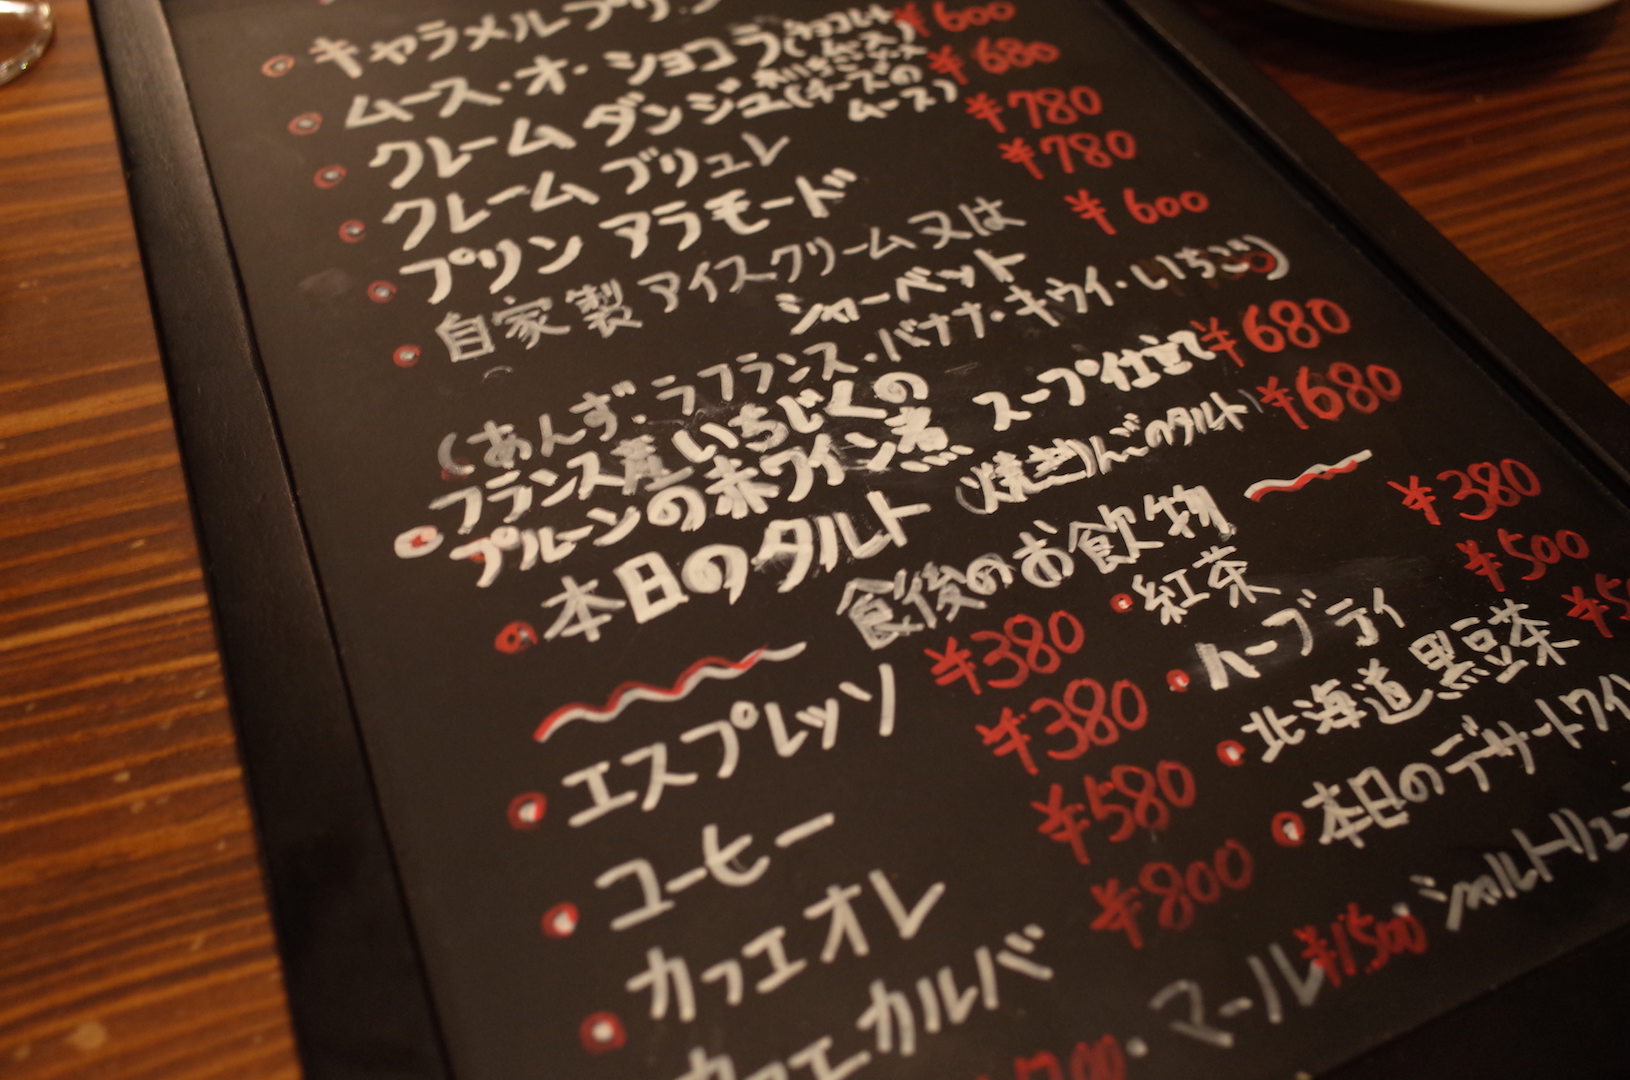 キャラメルプリン
ムース・オ・ショコラ(ショコラ ¥600
クレーム ダンジュ(チーズのムース) ¥680
クレーム ブリュレ ¥780
プリン アラモード ¥780
自家製 アイスクリーム又は ¥600
シャーベット
(あんず・ラフランス・バナナ・キウイ・いちご)
フランス産いちじくの
プルーンの赤ワイン煮 スープ仕立て ¥680
本日のタルト (焼きりんごのタルト) ¥680
食後のお飲物
エスプレッソ ¥380
コーヒー ¥380
カフェオレ ¥580
カフェカルバ ¥800
紅茶 ¥380
ハーブティ ¥500
北海道黒豆茶
本日のデザートワイ
・マール ¥1500 シャルトリュー